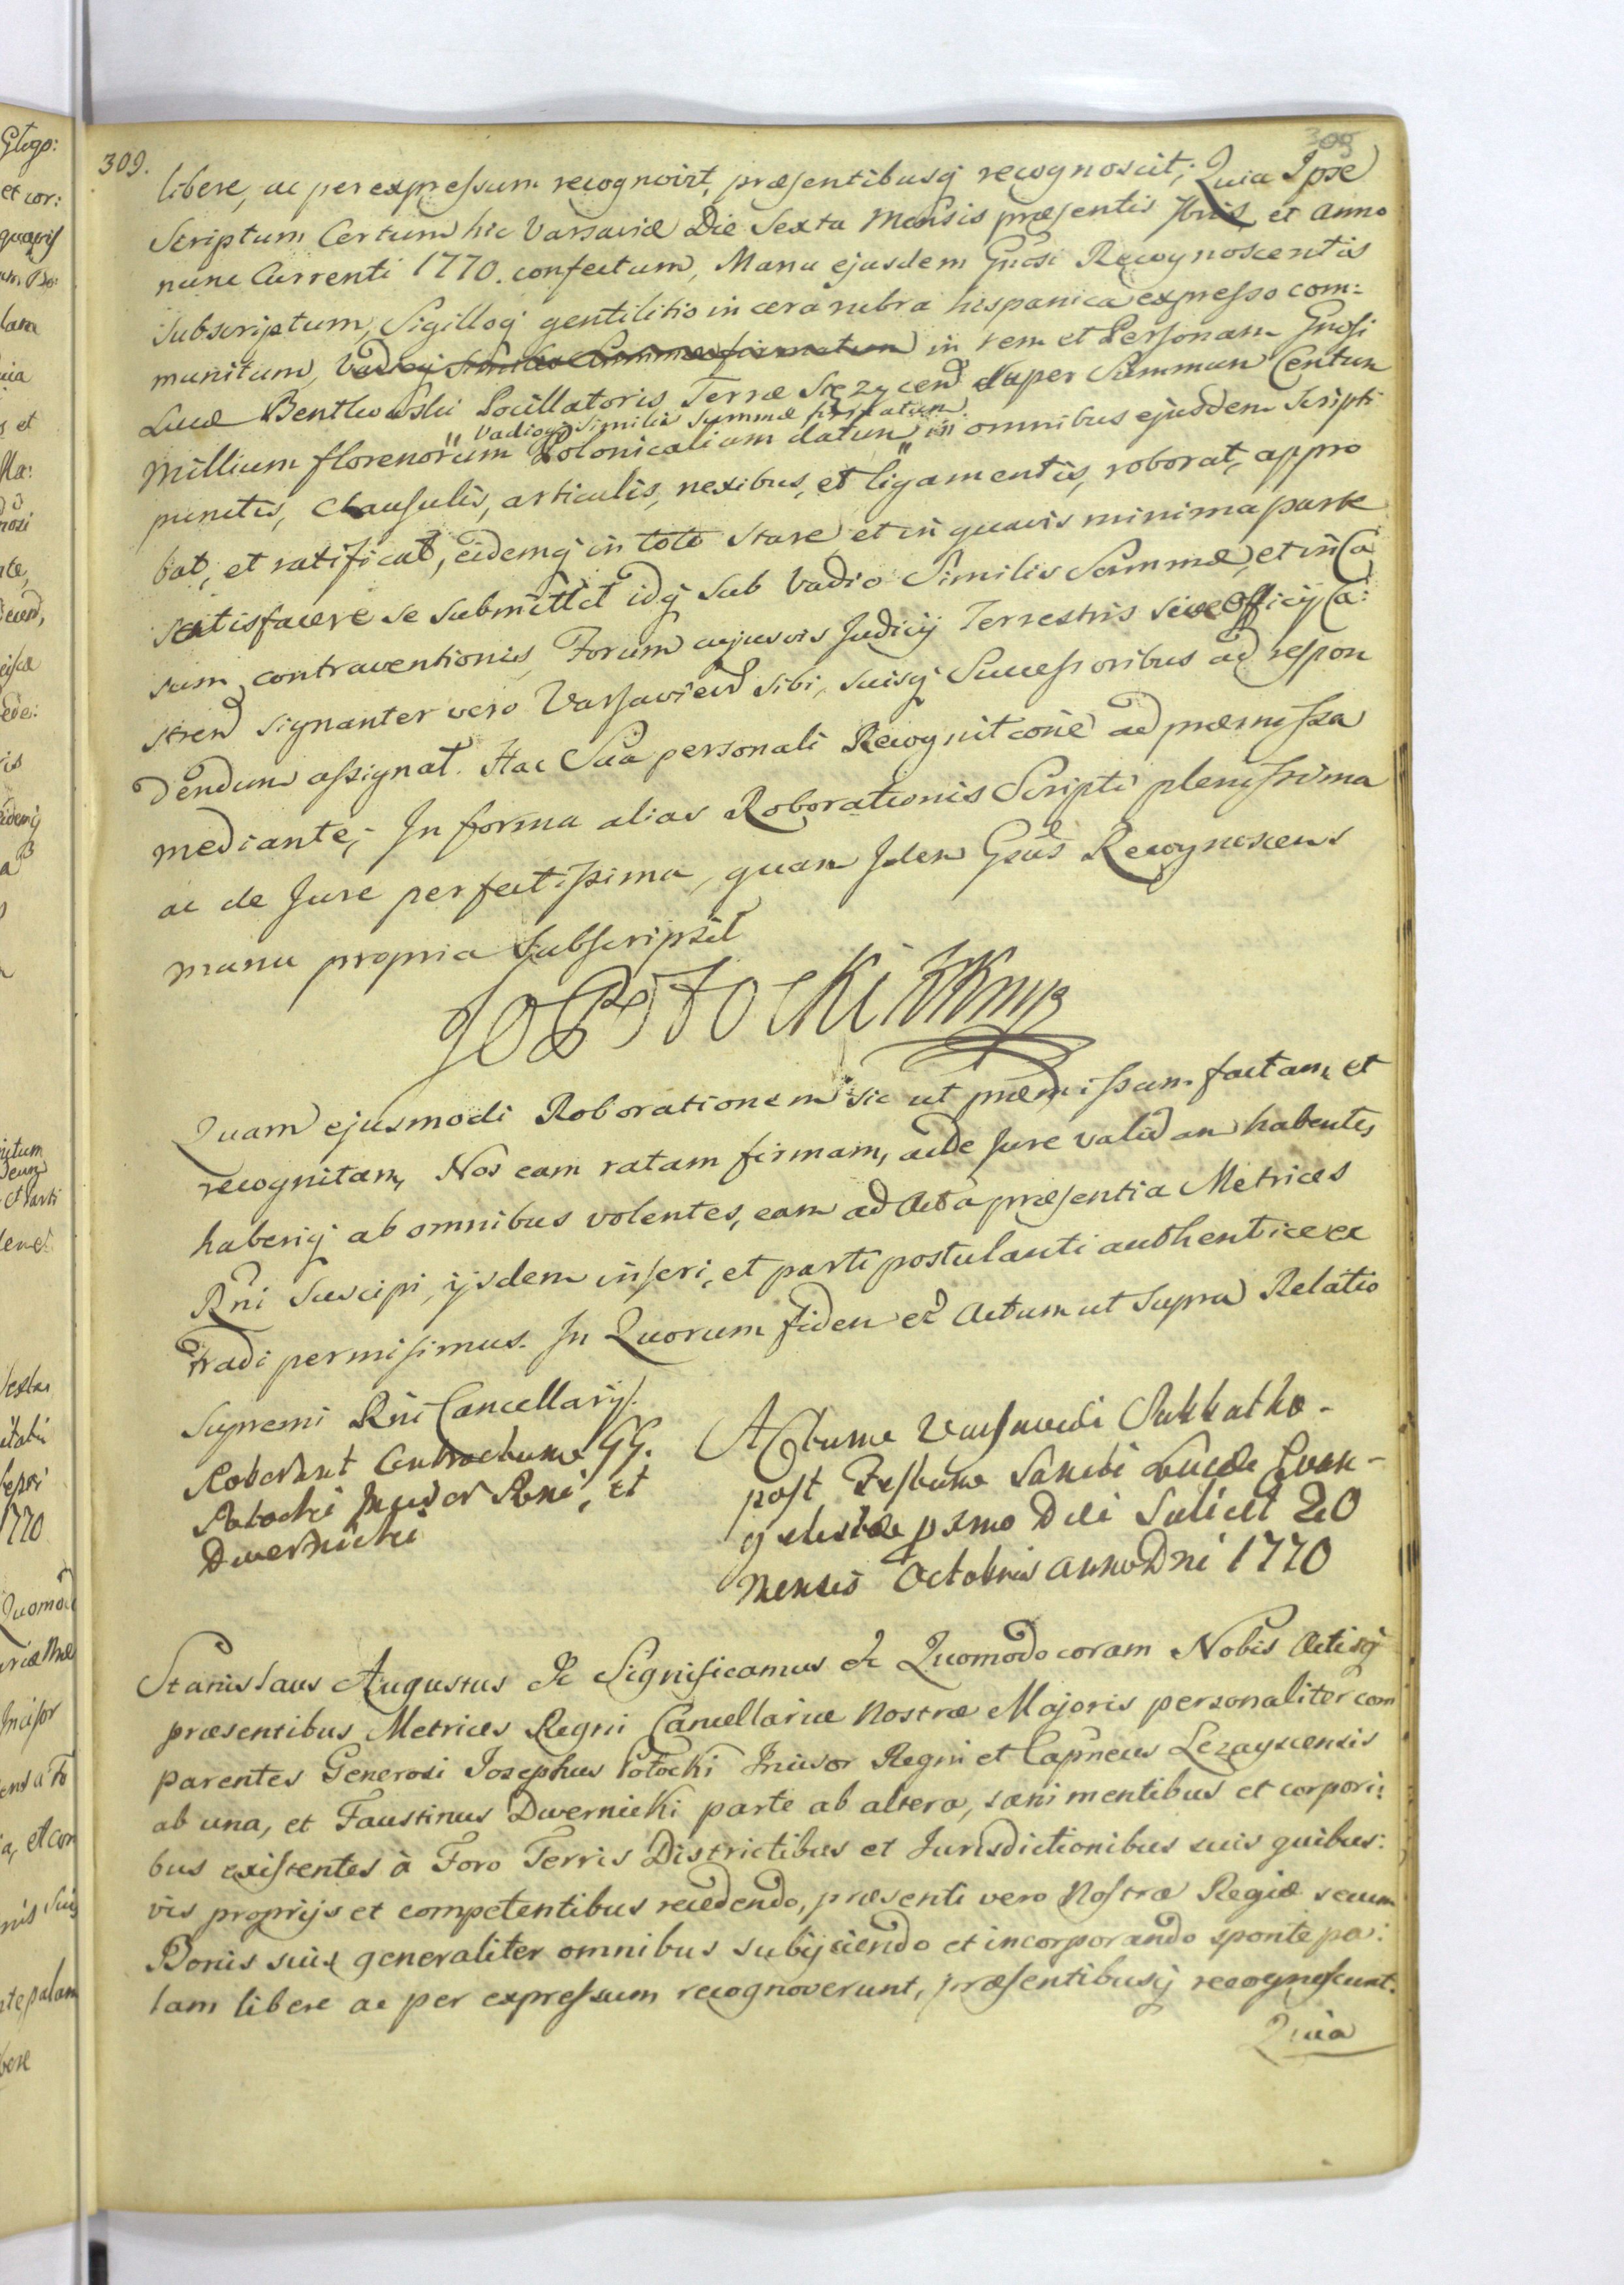 309.
309
libere, ac per expressum recognovit, præsentibusq recognoscit; Quia Ipse
Scriptum Certum hic Varsaviæ Die Sexta Mensis præsentis et Anno
nunc Currenti 1770. confectum, Manu ejusdem Gnosi Recognoscentis
Subscriptum, Sigilloq gentilitio in cera rubra hispanica expresso com:
munitum, in rem et Personam Gnosi
Lucæ Bentkowski Pocillatoris Terræ Stęzycen Super Summam Centum
Vadioq Similis Summæ firmatum
millium florenorum Polonicalium datum in omnibus ejusdem Scripti
punctis, Clausulis, articulis, nexibus, et ligamentis, roborat, appro
bat, et ratificat, eidemq in toto stare et in quavis minima parte
satisfacere se submittit idq sub Vadio Similis Summæ, et in Ca
sum contraventionis Forum cujusvis Judicij Terrestris sive Officij Ca:
stren signanter vero Varsavien sibi, suisq Successoribus ad respon
dendum assignat. Hac Sua personali Recognitcone ad præmissa
mediante; In forma alias Roborationis Scripti plenissima
ac de Jure perfectissima, quam Idem Gsus Recognoscens
manu propria Subscripsit
JoPotocki KKmp
Quam ejusmodi Roborationem sic ut præmissum factam et
recognitam, Nos eam ratam firmam, ac de Jure validam habentes
haberiq ab omnibus volentes, eam ad Acta præsentia Metrices
Rni Suscipi, ijsdem inseri, et parti postulanti authentice ex
tradi permisimus. In Quorum fidem et Actum ut Supra Relatio
Supremi Rni Cancellarij.
Roborant Contractum GG.
Potocki Incisor Rni, et
Dwernicki
Actum Varsaviæ Sabbatho
post Festum Sancti Lucæ Evan-
gelistæ pxmo Die Scilicet 20
Mensis Octobris Anno Dni 1770
Stanislaus Augustus &c Significamus &c Quomodo coram Nobis Actisq
præsentibus Metrices Regni Cancellariæ Nostræ Majoris personaliter com
parentes Generosi Josephus Potocki Incisor Regni et Capneus Lezayscensis
ab una, et Faustinus Dwernicki parte ab altera, sani mentibus et corpori:
bus existentes à Foro Terris Districtibus et Jurisdictionibus suis quibus:
vis proprijs et competentibus recedendo, præsenti vero Nostræ Regiæ secum
Bonis suis generaliter omnibus subijciendo et incorporando sponte pa:
lam libere ac per expressum recognoverunt, præsentibusq recognoscunt.
Quia